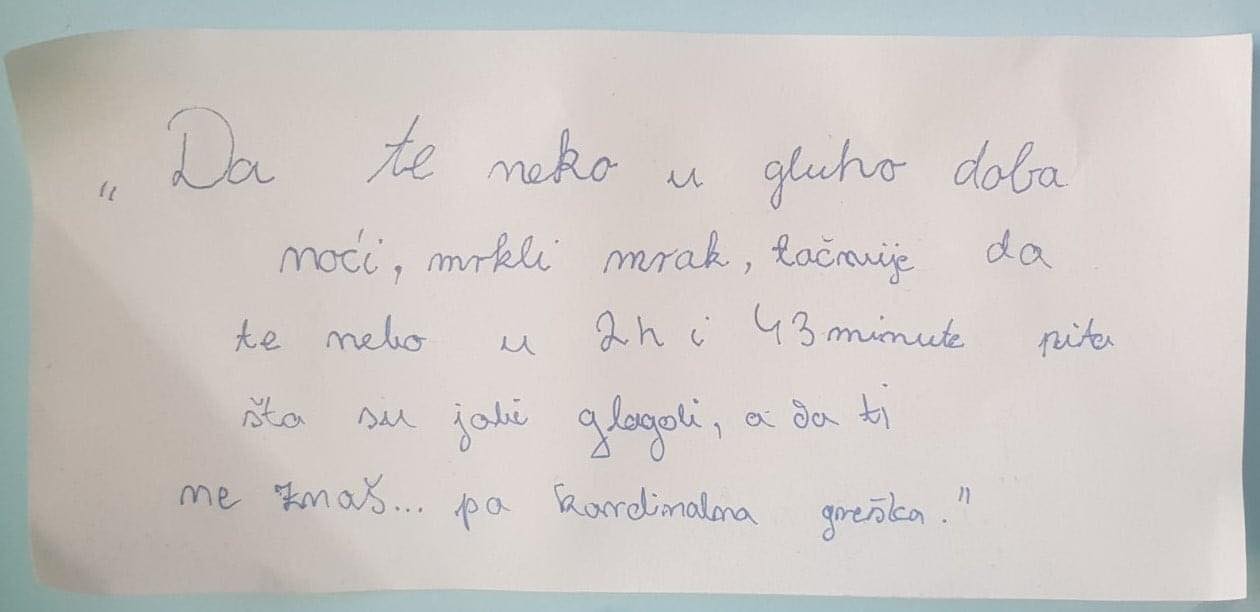 „Da te neko u gluho doba
noći, mrkli mrak, tačnije da
te neko u 2h i 43 minute pita
šta su jaki glagoli, a da ti
ne znaš... pa kardinalna greška."